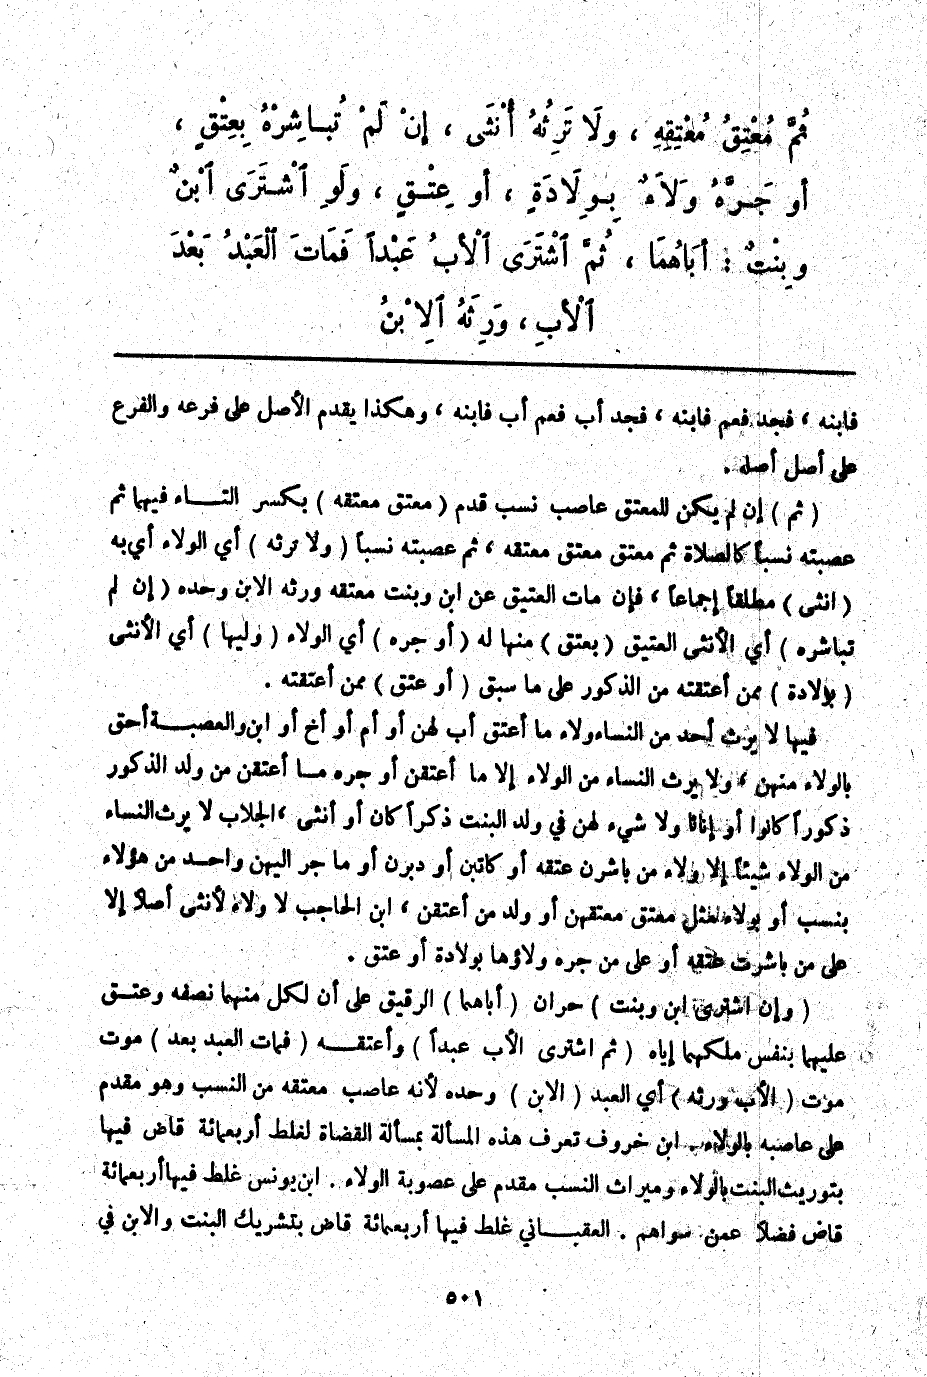 ثُمَّ مُعْتِقُ مُعْتِقِهِ ، ولَا تَرِثُهُ أُنْثَى ، إنْ لَمْ تُبَاشِرْهُ بِعِتْقٍ ،
أو جَرَّهُ وَلاَءٌ بِوِلَادَةٍ ، أو عِتْقٍ ، ولَوِ ٱشْتَرَى ٱبْنٌ
وبِنْتٌ : أبَاهُمَا ، ثُمَّ ٱشْتَرَى ٱلْأبُ عَبْداً فَمَاتَ ٱلْعَبْدُ بَعْدَ
ٱلْأبِ ، وَرِثَهُ ٱلِابْنُ
فابنه ، فجد فعم فابنه ، فجد أب فعم أب فابنه ، وهكذا يقدم الأصل على فرعه والفرع
على أصل أصله .
( ثم ) إن لم يكن للمعتق عاصب نسب قدم ( معتق معتقه ) بكسر التـاء فيهما ثم
عصبته نسباً كالصلاة ثم معتق معتق معتقه ، ثم عصبته نسباً ( ولا ترثه ) أي الولاء أي به
( انثى ) مطلقاً إجماعاً ، فإن مات العتيق عن ابن وبنت معتقه ورثه الابن وحده ( إن لم
تباشره ) أي الأنثى العتيق ( بعتق ) منها له ( أو جره ) أي الولاء ( وليها ) أي الأنثى
( بولادة ) ممن أعتقته من الذكور على ما سبق ( أو عتق ) ممن أعتقته .
فيها لا يرث أحد من النساء ولاء ما أعتق أب لهن أو أم أو أخ أو ابن والعصبـة أحق
بالولاء منهن ، ولا يرث النساء من الولاء إلا ما أعتقن أو جره مـا أعتقن من ولد الذكور
ذكوراً كانوا أو إناثا ولا شيء لهن في ولد البنت ذكراً كان أو أنثى ، الجلاب لا يرث النساء
من الولاء شيئاً إلا ولاء من باشرن عتقه أو كاتبن أو دبرن أو ما جر اليهن واحـد من هؤلاء
بنسب أو بولاء لمثل معتق معتقهن أو ولد من أعتقن ، ابن الحاجب لا ولاء لأنثى أصلا إلا
على من باشرت عتقه أو على من جره ولاؤها بولادة أو عتق .
( وإن اشترى ابن وبنت ) حران ( أباهما ) الرقيق على أن لكل منهما نصفه وعتـق
عليهما بنفس ملكهما إياه ( ثم اشترى الأب عبداً ) وأعتقـه ( فمات العبد بعد ) موت
موت ( الأب ورثه ) أي العبد ( الابن ) وحده لأنه عاصب معتقه من النسب وهو مقدم
على عاصبه بالولاء . ابن خروف تعرف هذه المسألة بمسألة القضاة لغلط أربعمائة قاض فيها
بتوريث البنت بالولاء وميراث النسب مقدم على عصوبة الولاء . ابن يونس غلط فيها أربعمائة
قاض فضلا عمن سواهم . العقبـاني غلط فيها أربعمائة قاض بتشريك البنت والابن في
٥٠١